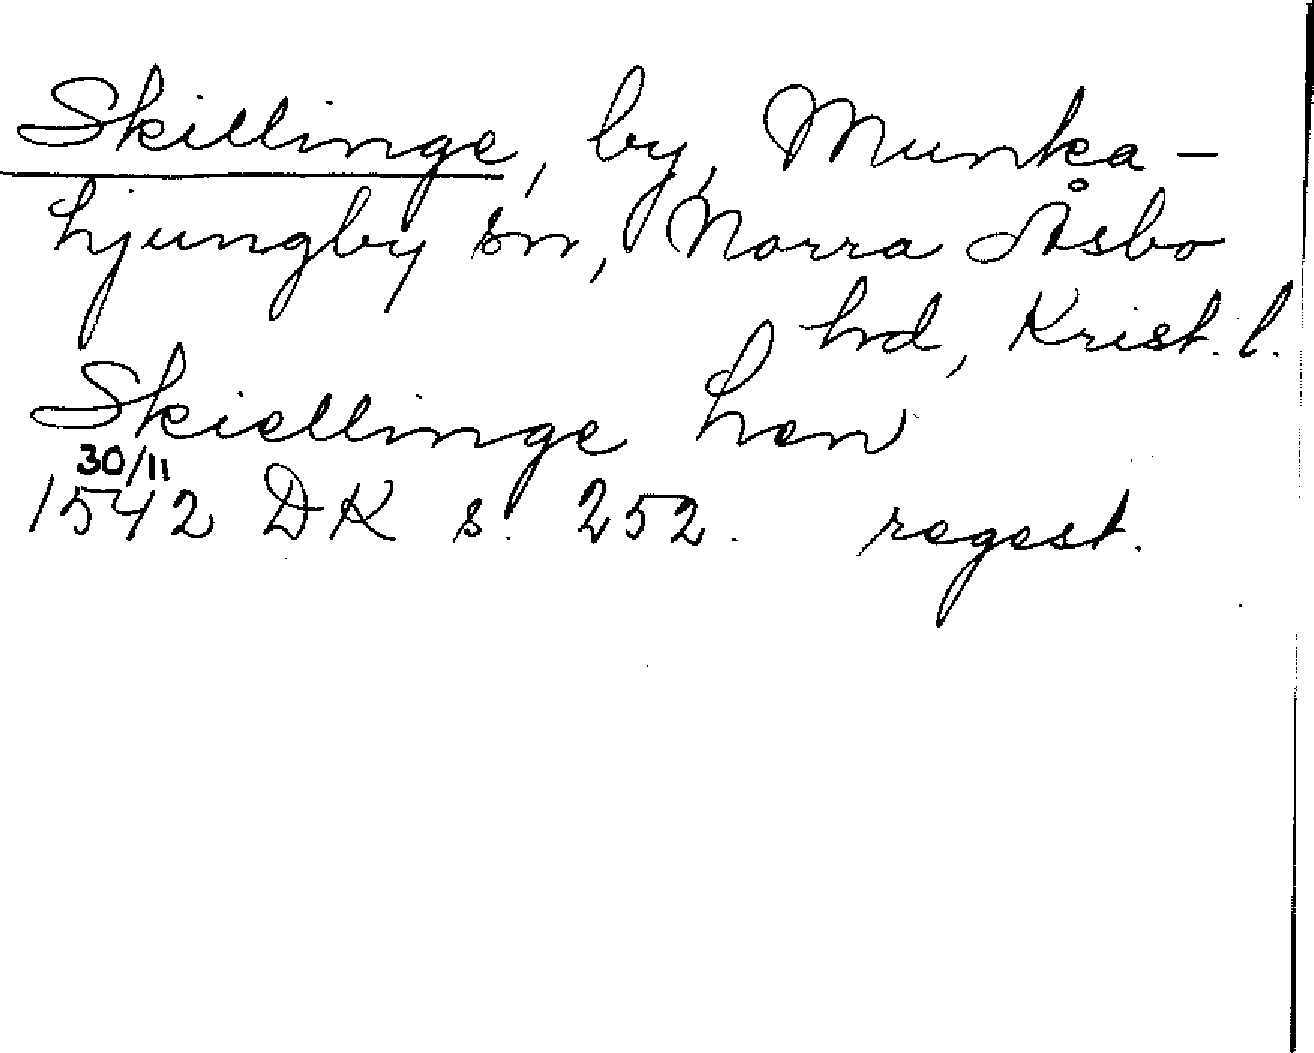 Skillinge, by, Munka-
Ljungby sn, Norra Åsbo
hd, Krist. l.
Skiellinge hen
30/11
1542 DK s. 252. regest.